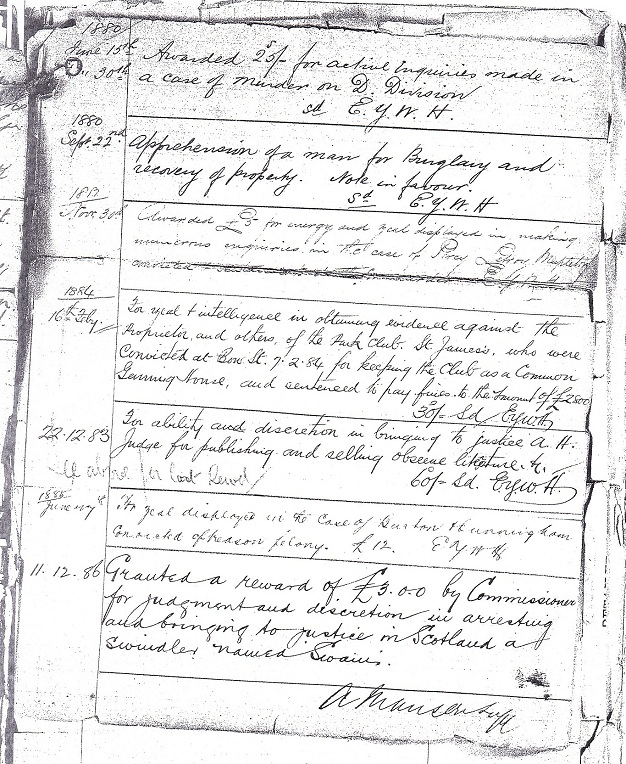 1880
June 15th
Do. 30th
Awarded 25/- for active Inquiries made in
a case of murder on D. Division
sd E. Y. W. H.
1880
Sept. 22nd
Apprehension of a man for Burglary and
recovery of property. Note in favour.
sd E. Y. W. H
Nov. 30th
Awarded £3 for energy and zeal displayed in making
numerous enquiries in the case of Percy Lefroy Mapleton
convicted
1884
16th Feby.
For zeal & intelligence in obtaining evidence against the
Proprietor, and others, of the Park Club, St James's, who were
Convicted at Bow St. 7.2.84 for keeping the Club as a Common
Gaming House, and sentenced to pay fines to the amount of £2800
30/- Sd EYWH
22.12.83
For ability and discretion in bringing to justice A. H.
Judge for publishing and selling obscene literature &c.
60/- Sd. EYW.H.
above for last
June
For zeal displayed in the Case of Burton & Cunningham
Convicted of treason felony. £12. E Y W H
11.12.86
Granted a reward of £3.0.0 by Commissioner
for judgment and discretion in arresting
and bringing to justice in Scotland a
swindler named Swains.